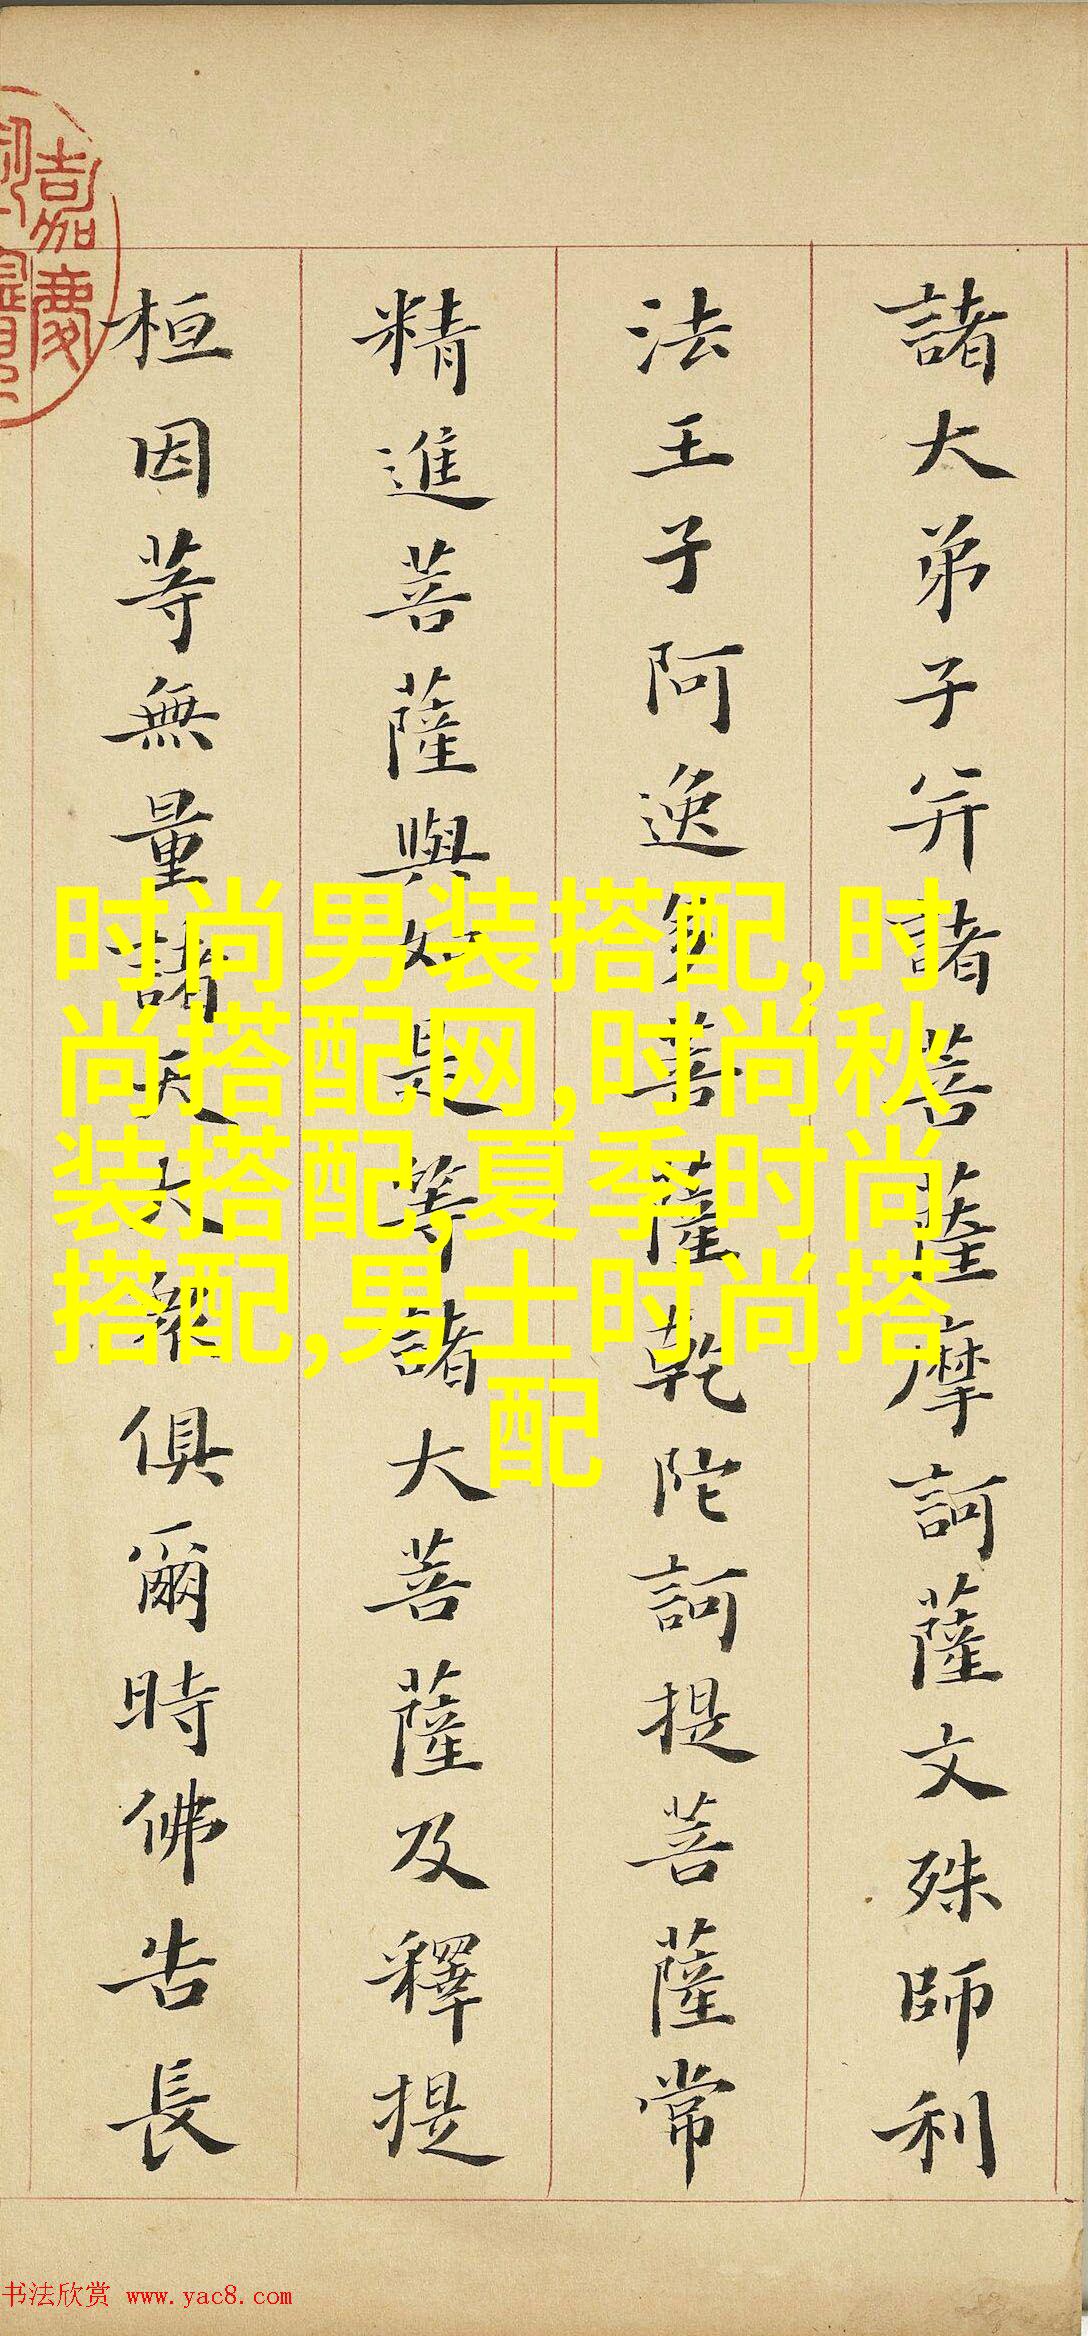 諸大弟子并諸菩薩摩訶薩文殊師利
法王子阿逸多菩薩乾陀訶提菩薩常
精進菩薩與如是等諸大菩薩及釋提
桓因等無量諸天大衆俱爾時佛告長
嘉慶
时尚男装搭配,时
尚搭配网,时尚秋
装搭配,夏季时尚
搭配,男士时尚搭
配
书法欣赏 www.yac8.com